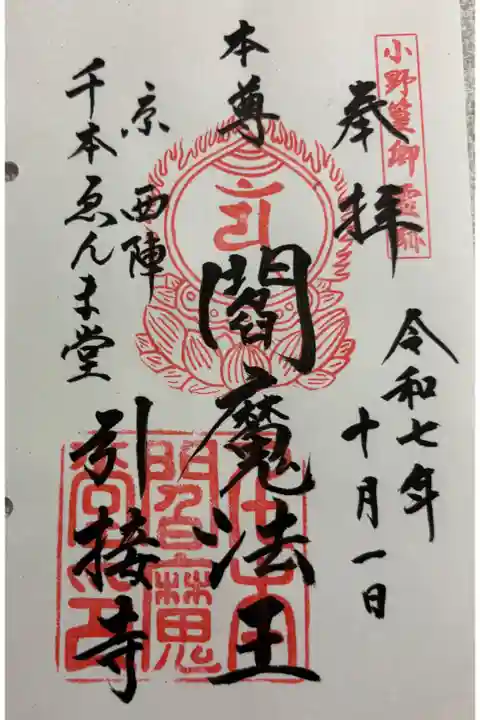 小野篁御霊跡
奉拝
令和七年
十月一日
本尊
閻魔法王
京西陣
千本ゑんま堂
引接寺